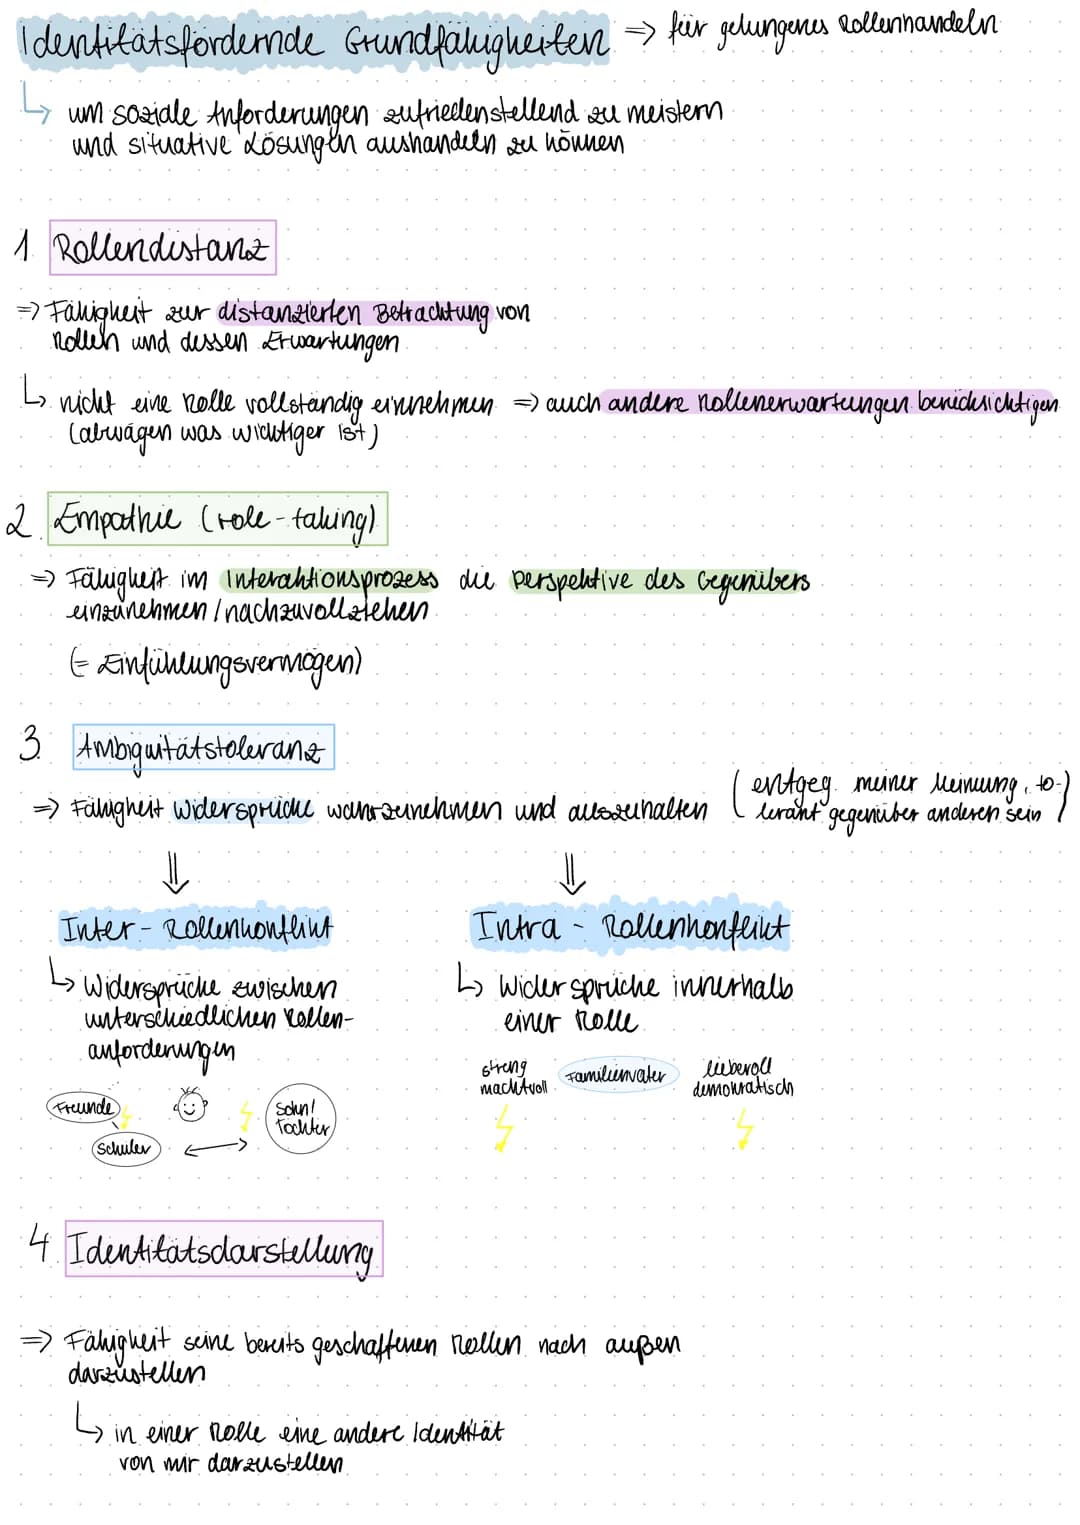 Identitätsfördernde Grundfähigkeiten => für gelungenes Rollenhandeln
um soziale Anforderungen zufriedenstellend zu meistern
und situative Lösungen aushandeln zu können
1. Rollendistanz
=> Fähigkeit zur distanzierten Betrachtung von
Rollen und dessen Erwartungen
nicht eine Rolle vollständig einnehmen => auch andere Rollenerwartungen berücksichtigen
(abwägen was wichtiger ist)
2. Empathie (role-taking)
=> Fähigkeit im Interaktionsprozess die Perspektive des Gegenübers
einzunehmen / nachzuvollziehen
(= Einfühlungsvermögen)
3. Ambiguitätstoleranz
=> Fähigkeit Widersprüche wahrzunehmen und auszuhalten (entgeg. meiner Meinung, to-
lerant gegenüber anderen sein)
Inter - Rollenkonflikt
Widersprüche zwischen
unterschiedlichen Rollen-
anforderungen
Freunde
Schüler
Sohn/
Tochter
Intra - Rollenkonflikt
Widersprüche innerhalb
einer Rolle
streng
machtvoll
Familienvater
liebevoll
demokratisch
4. Identitätsdarstellung
=> Fähigkeit seine bereits geschaffenen Rollen nach außen
darzustellen
in einer Rolle eine andere Identität
von mir darzustellen